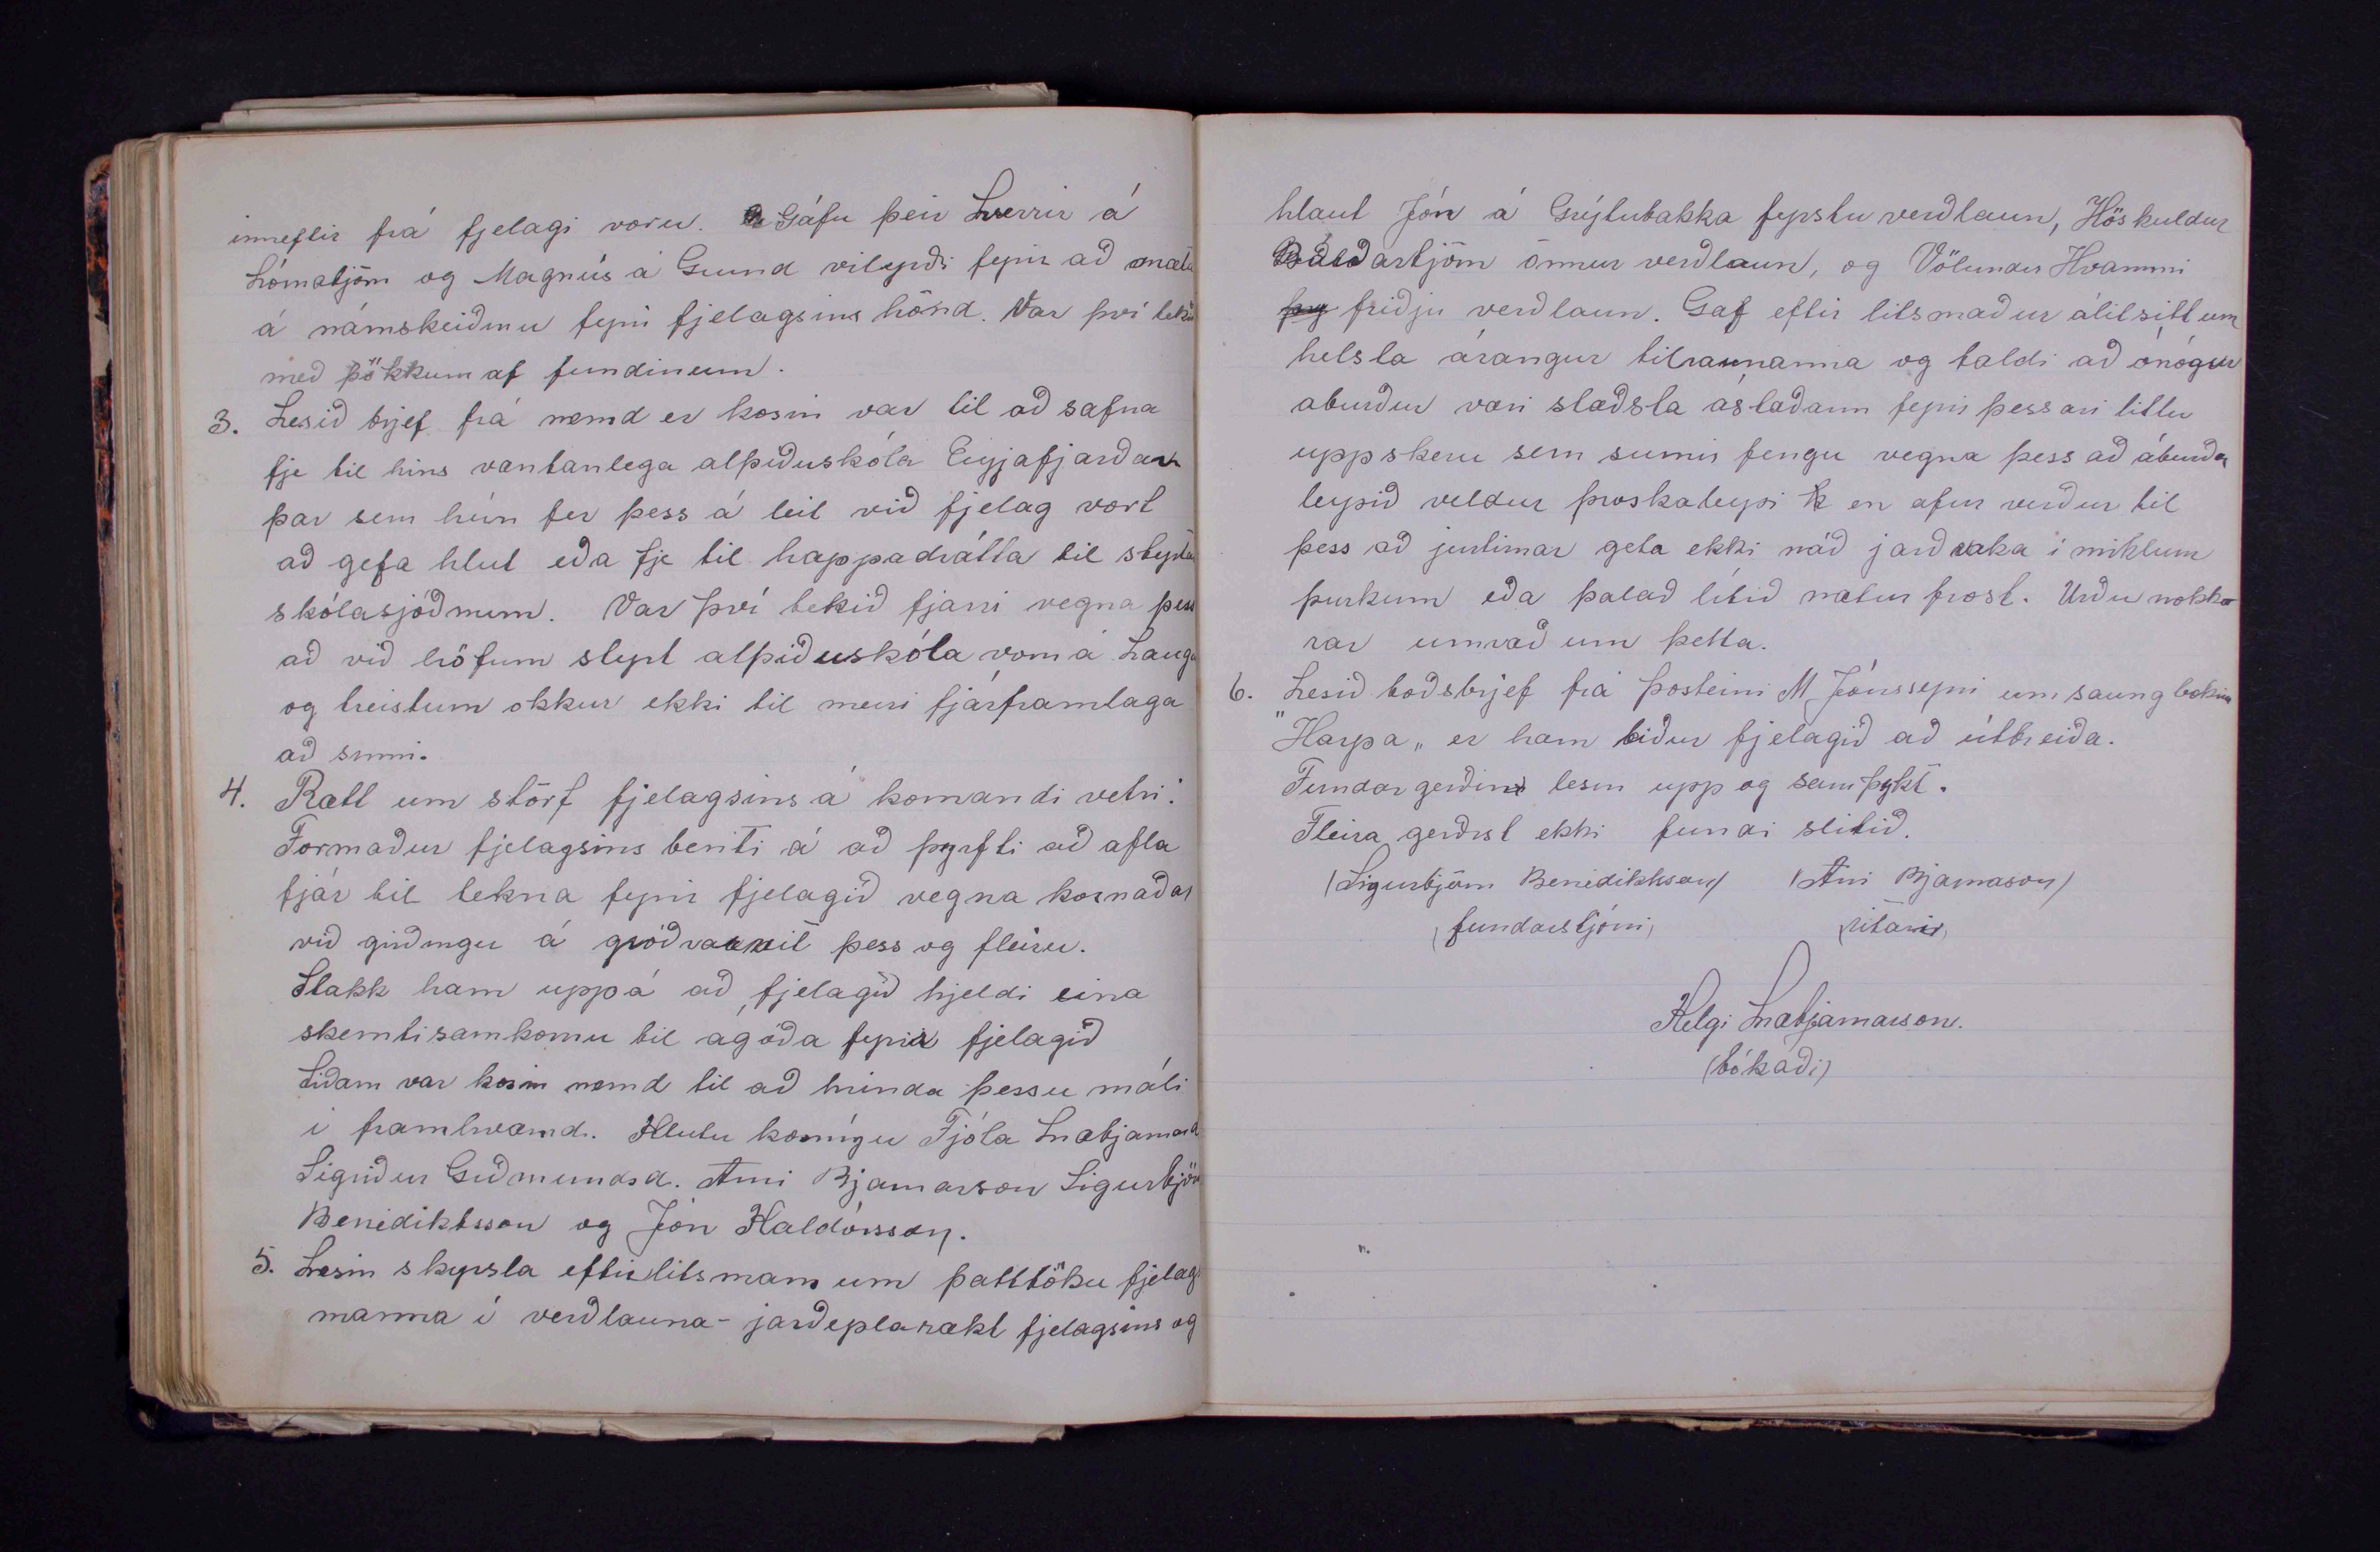 inneftir frá fjelagi voru. Gáfu þeir Sverrir á
Lómatjörn og Magnús á Grund vilyrði fyrir að mæta
á námskeiðinu fyrir fjelagsins hönd. Var því tekið
með þökkum af fundinum.
3. Lesið brjef frá nemd er kosin var til að safna
fje til hins væntanlega alþíðuskóla Eyjafjarðar
þar sem hún fer þess á leit við fjelag vort
að gefa hlut eða fje til happadrátta til styrktar
skólasjóðnum. Var því tekið fjarri vegna þess
að við höfum styrt alþiðuskóla vorn á Laugum
og treistum okkur ekki til meiri fjárframlaga
að sinni.
4. Rætt um störf fjelagsins á komandi vetri.
Formaður fjelagsins benti á að þyrfti að afla
fjár til tekna fyrir fjelagið vegna kosnaðar
við girðingu á gróðrareit þess og fleiru.
Stakk hann uppá að fjelagið hjeldi eina
skemtisamkomu til ágóða fyrir fjelagið
Síðann var kosin nemd til að hrinda þessu máli
í framhvæmd. Hlutu kosnígu Fjóla Snæbjarnard
Sigríður Guðmundsd. Árni Bjarnarson Sigurbjörn
Benediktsson og Jón Haldórsson.
5. Lesin skyrsla eftirlitsmans um þátttöku fjelags
manna í verðlauna-jarðeplarækt fjelagsins og
hlaut Jón á Grýtubakka fyrstu verðlaun, Höskuldur
Báldarstjörn önnur verðlaun, og Völundur Hvammi
þriðju verðlaun. Gaf eftir litsmaður álit sitt um
helsta árangur tilraunanna og taldi að ónógur
aburður væri staðsta ástaðann fyrir þessari littlu
uppskeru sem sumir fengu vegna þess að áburðar
leysið veldur þroskaleysi en aftur verður til
þess að jurtirnar geta ekki náð jarðraka í miklum
þurkum eða þalað lítið nætur frost. Urðu nokkr
rar umræð um þetta.
6. Lesið boðsbrjef frá Þosteini M Jónssyni um saungbókina
"Harpa„ er hann biður fjelagið að útbreiða.
Fundargerðin lesin upp og samþykt.
Fleira gerðist ekki fundi slitið.
(Sigurbjörn Benediktsson) (Árni Bjarnason)
(fundarstjóri) (ritari)
Helgi Snæbjarnarson.
(bókaði)